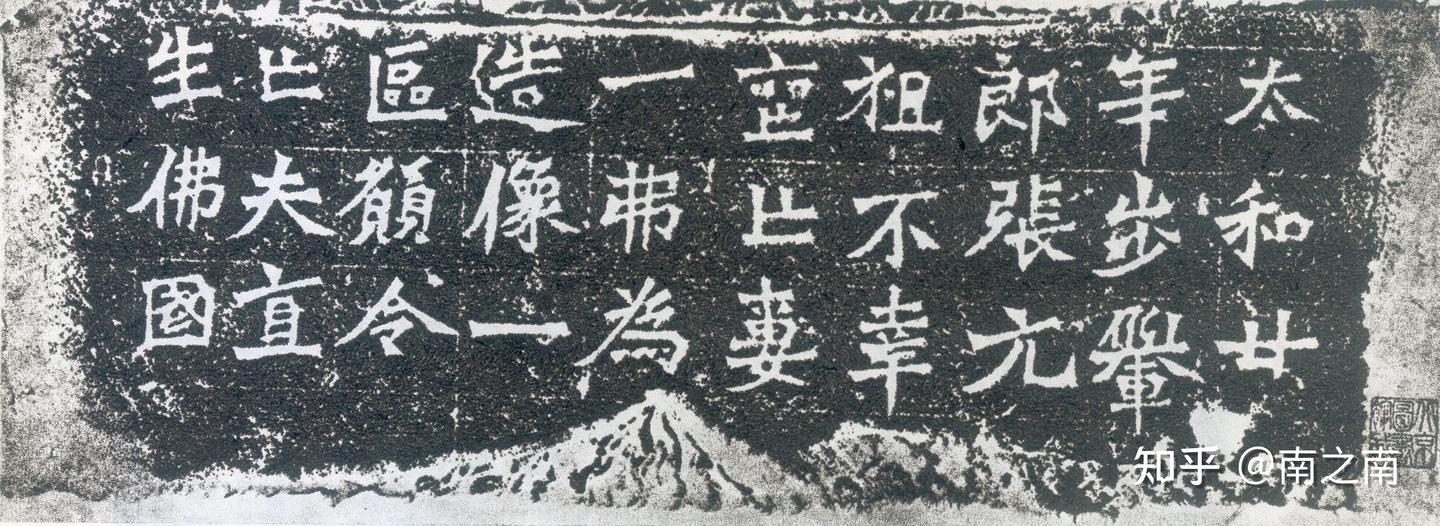 太和廿
年步轝
郎張元
祖不幸
喪亡妻
一弗為
造像一
區願令
亡夫直
生佛國
知乎 @南之南